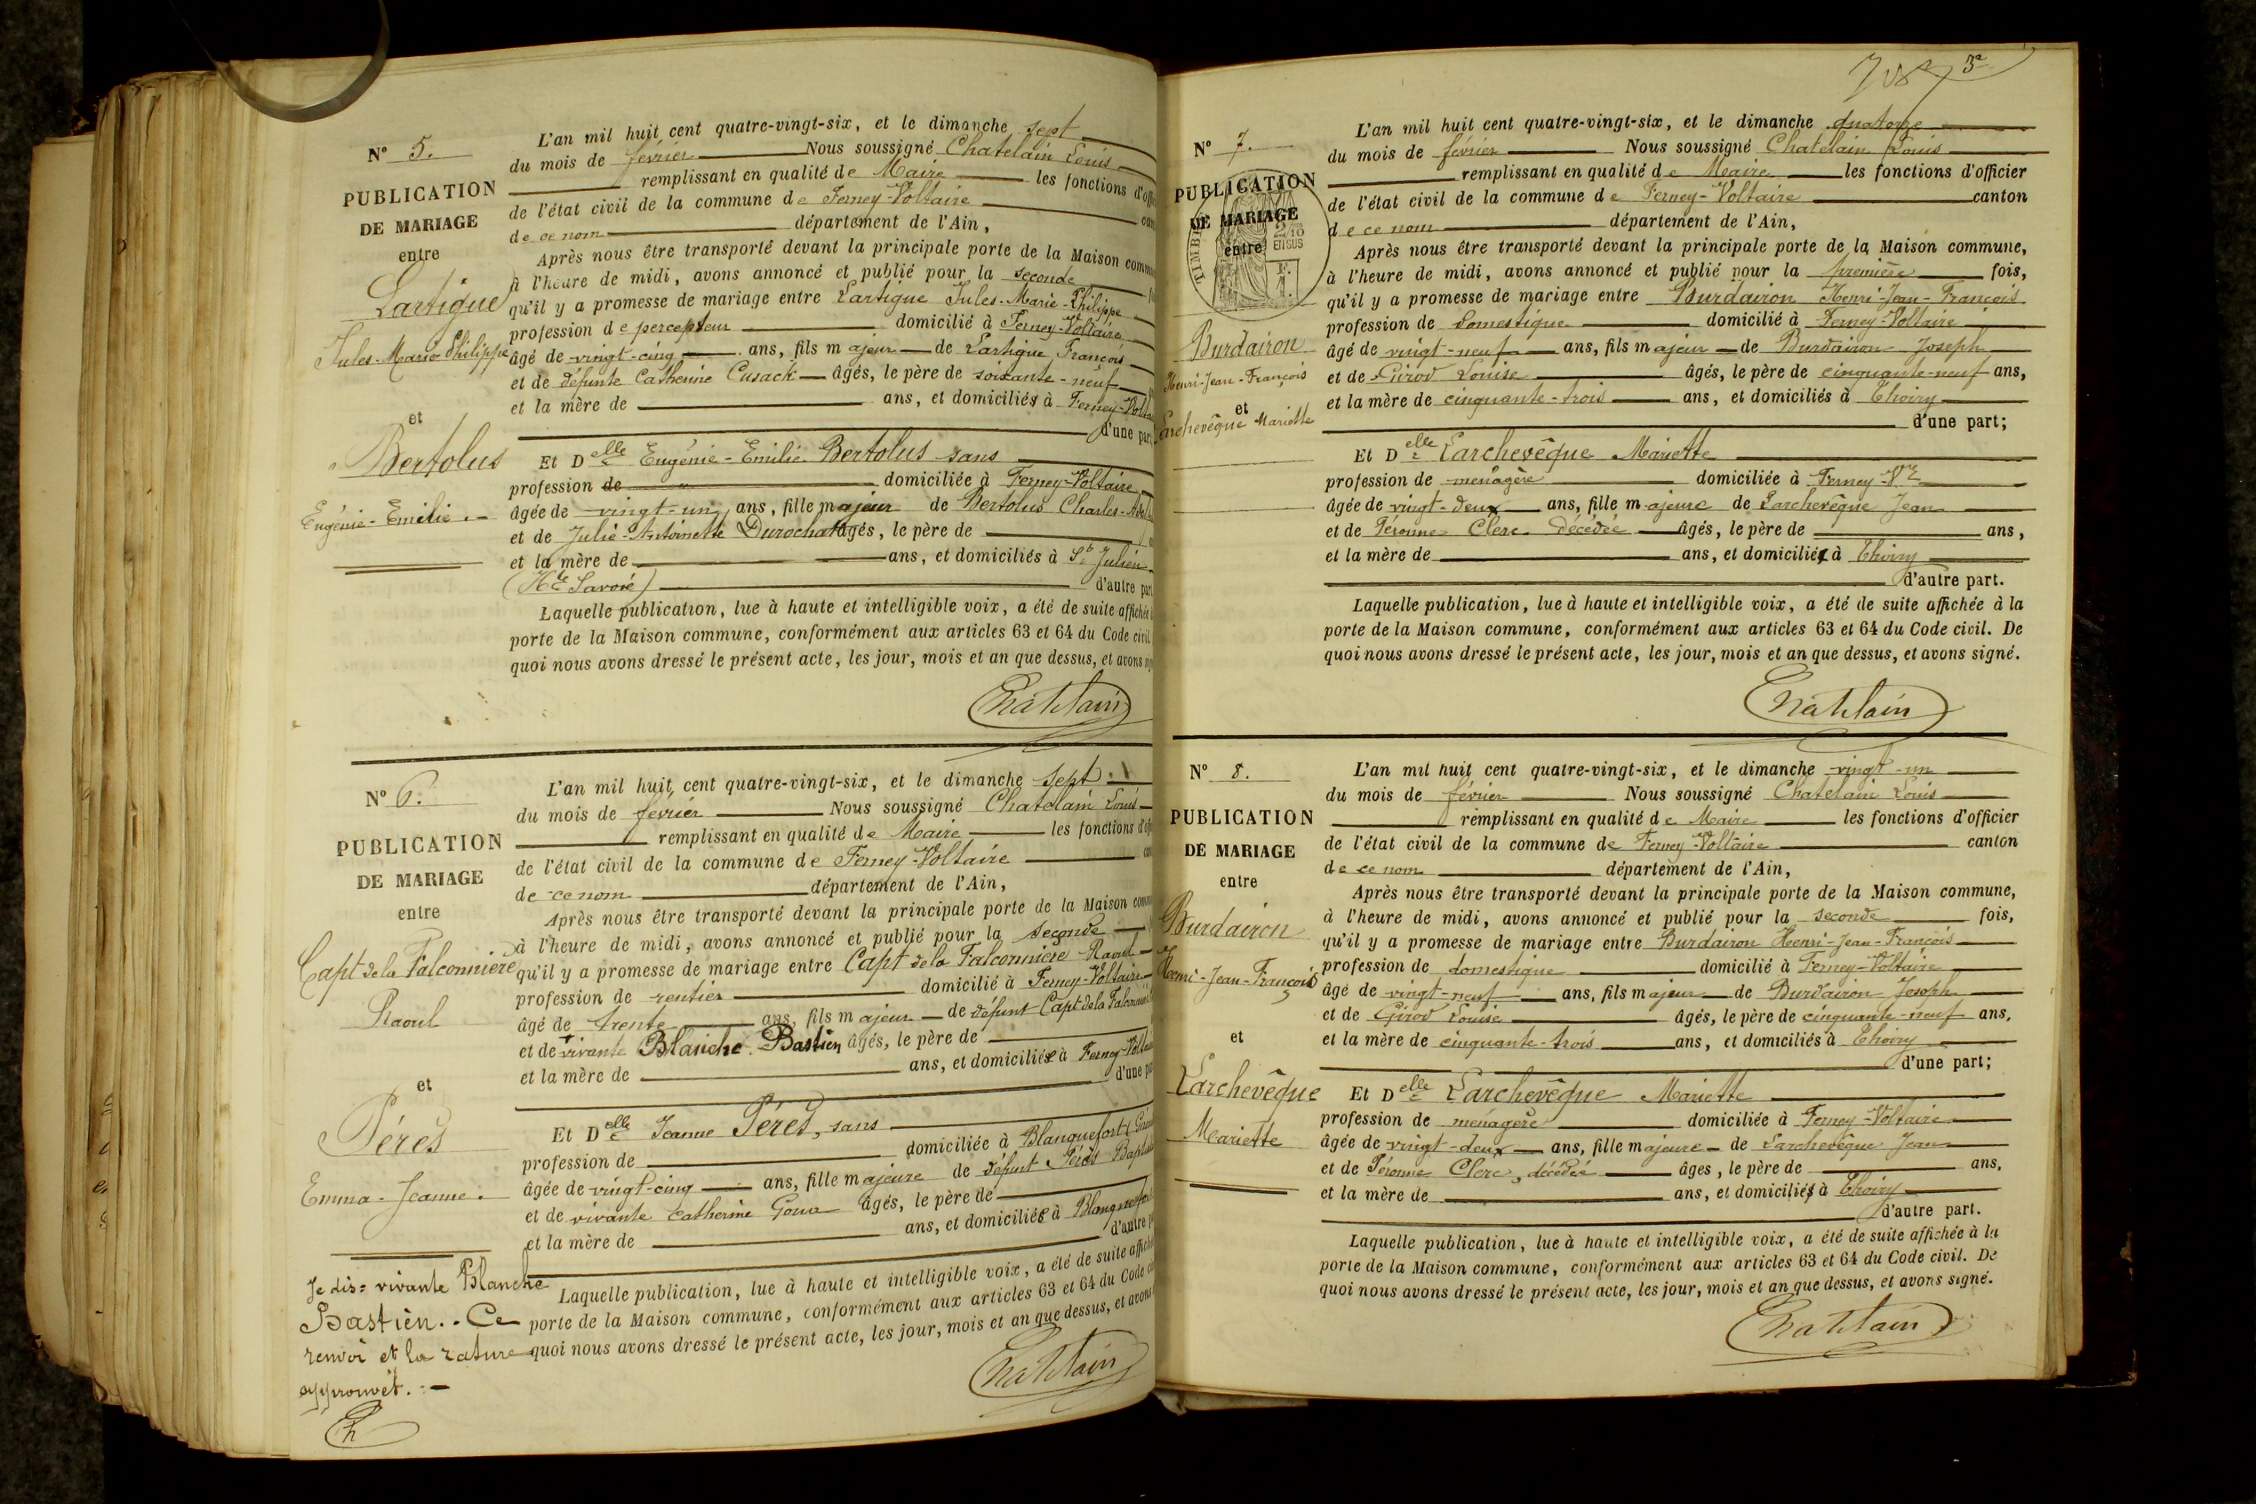 N° 5.
PUBLICATION
DE MARIAGE
entre
Lartigue
Jules-Marie-Philippe
et
Bertolus
Eugénie-Emilie.
L'an mil huit cent quatre-vingt-six, et le dimanche sept
du mois de février Nous soussigné Chatelain Louis
remplissant en qualité de Maire les fonctions d'offi
de l'état civil de la commune de Ferney-Voltaire can
de ce nom département de l'Ain,
Après nous être transporté devant la principale porte de la Maison commu
à l'heure de midi, avons annoncé et publié pour la seconde
qu'il y a promesse de mariage entre Lartigue Jules-Marie-Philippe
profession de percepteur domicilié à Ferney-Voltaire
âgé de vingt-cinq ans, fils majeur de Lartigue François
et de défunte Catherine Cusack âgés, le père de soixante-neuf
et la mère de ans, et domiciliés à Ferney-Volta
d'une part
Et Delle Eugénie-Emilie Bertolus sans
profession de domiciliée à Ferney-Voltaire
âgée de vingt-un ans, fille majeur de Bertolus Charles
et de Julie-Antoinette Durochat âgés, le père de
et la mère de ans, et domiciliés à St Julien
(Hte Savoie) d'autre part
Laquelle publication, lue à haute et intelligible voix, a été de suite affichée
porte de la Maison commune, conformément aux articles 63 et 64 du Code civil
quoi nous avons dressé le présent acte, les jour, mois et an que dessus, et avons
Chatelain
N° 6.
PUBLICATION
DE MARIAGE
entre
Capt de la Falconnière
Raoul
et
Pérès
Emma-Jeanne.
Je dis = vivante Blanche
Bastien. Ce
renvoi et la rature
approuvés.
Ch
L'an mil huit cent quatre-vingt-six, et le dimanche sept
du mois de février Nous soussigné Chatelain Louis
remplissant en qualité de Maire les fonctions d'offi
de l'état civil de la commune de Ferney-Voltaire
de ce nom département de l'Ain,
Après nous être transporté devant la principale porte de la Maison comm
à l'heure de midi, avons annoncé et publié pour la seconde
qu'il y a promesse de mariage entre Capt de la Falconnière Raoul
profession de rentier domicilié à Ferney-Voltaire
âgé de trente ans, fils majeur de défunt Capt de la Falconnière
et de vivante Blanche Bastien âgés, le père de
et la mère de ans, et domiciliée à Ferney-Volta
d'une pa
Et Delle Jeanne Pérès, sans
profession de domiciliée à Blanquefort (Giron
âgée de vingt-cinq ans, fille majeure de défunt Pérès Baptiste
et de vivante Catherine Goua âgés, le père de
et la mère de ans, et domiciliée à Blanquefort
d'autre p
Laquelle publication, lue à haute et intelligible voix, a été de suite affichée
porte de la Maison commune, conformément aux articles 63 et 64 du Code
quoi nous avons dressé le présent acte, les jour, mois et an que dessus, et avons
Chatelain
3e
N° 7.
PUBLICATION
DE MARIAGE
entre
TIMBRE
2/10
EN SUS
Burdairon
Henri-Jean-François
et
Larchevêque Mariette
L'an mil huit cent quatre-vingt-six, et le dimanche quatorze
du mois de février Nous soussigné Chatelain Louis
remplissant en qualité de Maire les fonctions d'officier
de l'état civil de la commune de Ferney-Voltaire canton
de ce nom département de l'Ain,
Après nous être transporté devant la principale porte de la Maison commune,
à l'heure de midi, avons annoncé et publié pour la première fois,
qu'il y a promesse de mariage entre Burdairon Henri-Jean-François
profession de domestique domicilié à Ferney-Voltaire
âgé de vingt-neuf ans, fils majeur de Burdairon Joseph
et de Girod Louise âgés, le père de cinquante-neuf ans,
et la mère de cinquante-trois ans, et domiciliés à Thoiry
d'une part;
Et Delle Larchevêque Mariette
profession de ménagère domiciliée à Ferney-Vre
âgée de vingt-deux ans, fille majeure de Larchevêque Jean
et de Péronne Clerc décédée âgés, le père de ans,
et la mère de ans, et domicilié à Thoiry
d'autre part.
Laquelle publication, lue à haute et intelligible voix, a été de suite affichée à la
porte de la Maison commune, conformément aux articles 63 et 64 du Code civil. De
quoi nous avons dressé le présent acte, les jour, mois et an que dessus, et avons signé.
Chatelain
N° 8.
PUBLICATION
DE MARIAGE
entre
Burdairon
Henri-Jean-François
et
Larchevêque
Mariette
L'an mil huit cent quatre-vingt-six, et le dimanche vingt-un
du mois de février Nous soussigné Chatelain Louis
remplissant en qualité de Maire les fonctions d'officier
de l'état civil de la commune de Ferney-Voltaire canton
de ce nom département de l'Ain,
Après nous être transporté devant la principale porte de la Maison commune,
à l'heure de midi, avons annoncé et publié pour la seconde fois,
qu'il y a promesse de mariage entre Burdairon Henri-Jean-François
profession de domestique domicilié à Ferney-Voltaire
âgé de vingt-neuf ans, fils majeur de Burdairon Joseph
et de Girod Louise âgés, le père de cinquante-neuf ans,
et la mère de cinquante-trois ans, et domiciliés à Thoiry
d'une part;
Et Delle Larchevêque Mariette
profession de ménagère domiciliée à Ferney-Voltaire
âgée de vingt-deux ans, fille majeure de Larchevêque Jean
et de Péronne Clerc, décédée âgés, le père de ans,
et la mère de ans, et domicilié à Thoiry
d'autre part.
Laquelle publication, lue à haute et intelligible voix, a été de suite affichée à la
porte de la Maison commune, conformément aux articles 63 et 64 du Code civil. De
quoi nous avons dressé le présent acte, les jour, mois et an que dessus, et avons signé.
Chatelain